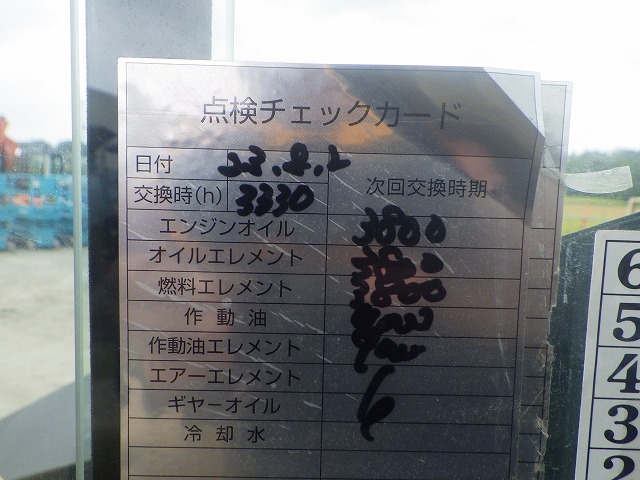 点検チェックカード
日付 23.8.2
交換時(h) 3330 次回交換時期
エンジンオイル 3800
オイルエレメント
燃料エレメント 3800
作動油
作動油エレメント
エアーエレメント
ギヤーオイル
冷却水
6
5
4
3
2